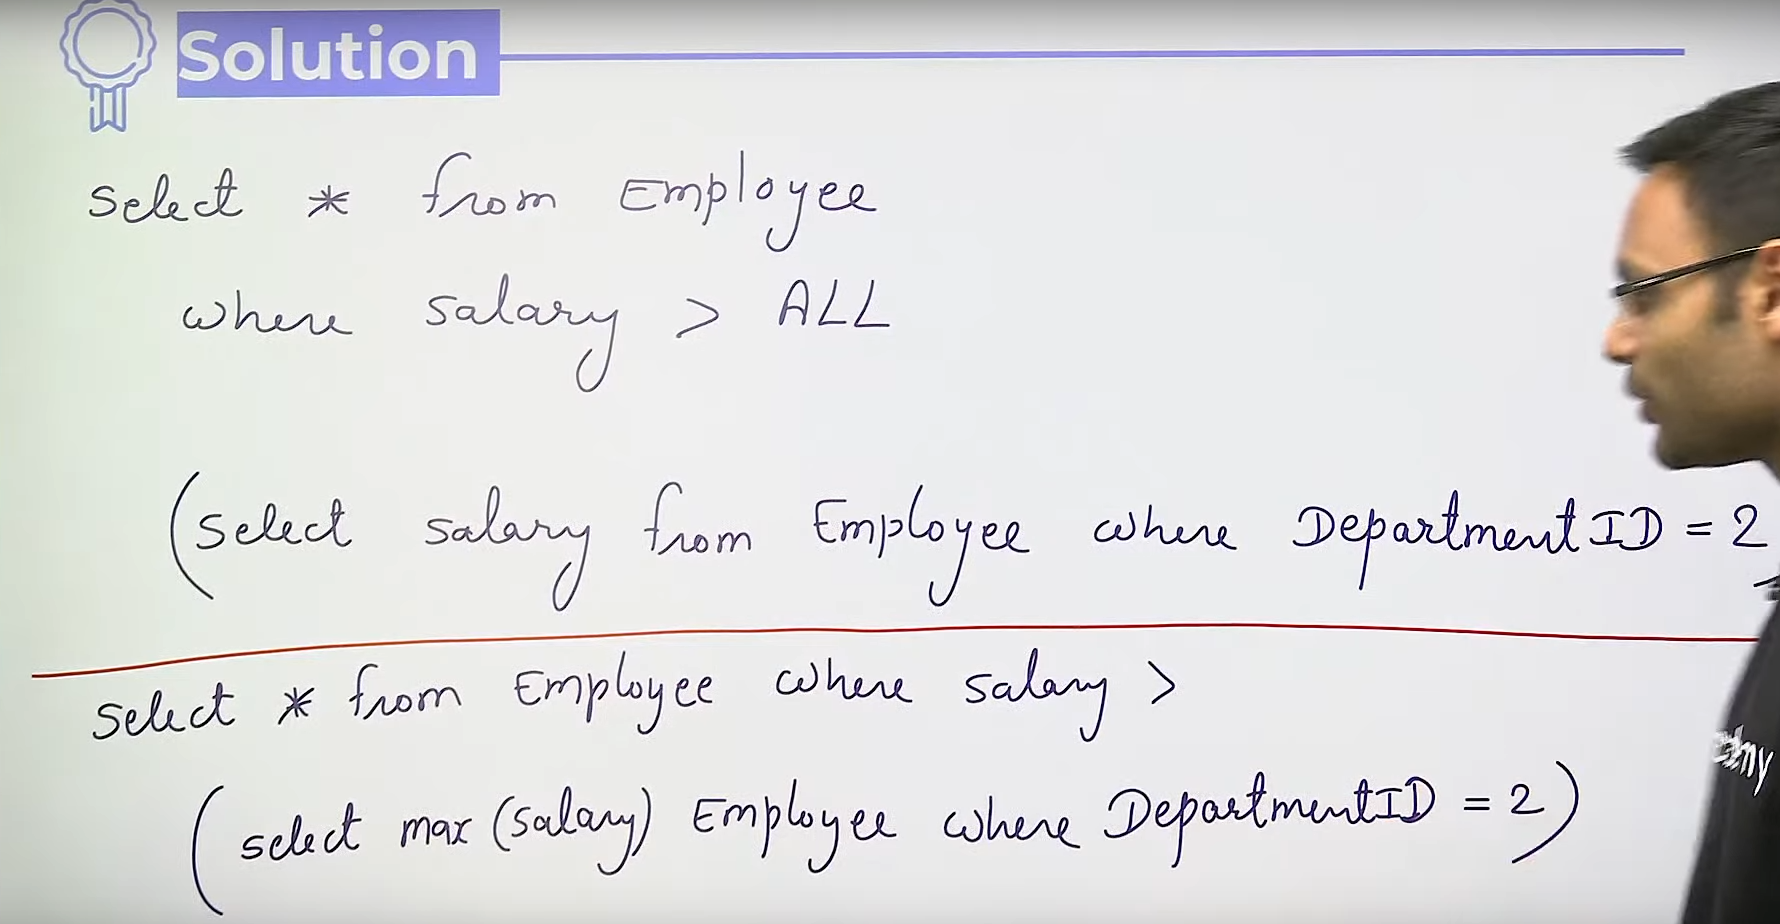 Solution
Select * from Employee
where salary > ALL
(select salary from Employee where DepartmentID = 2
select * from Employee where salary >
(select max (salary) Employee where DepartmentID = 2)